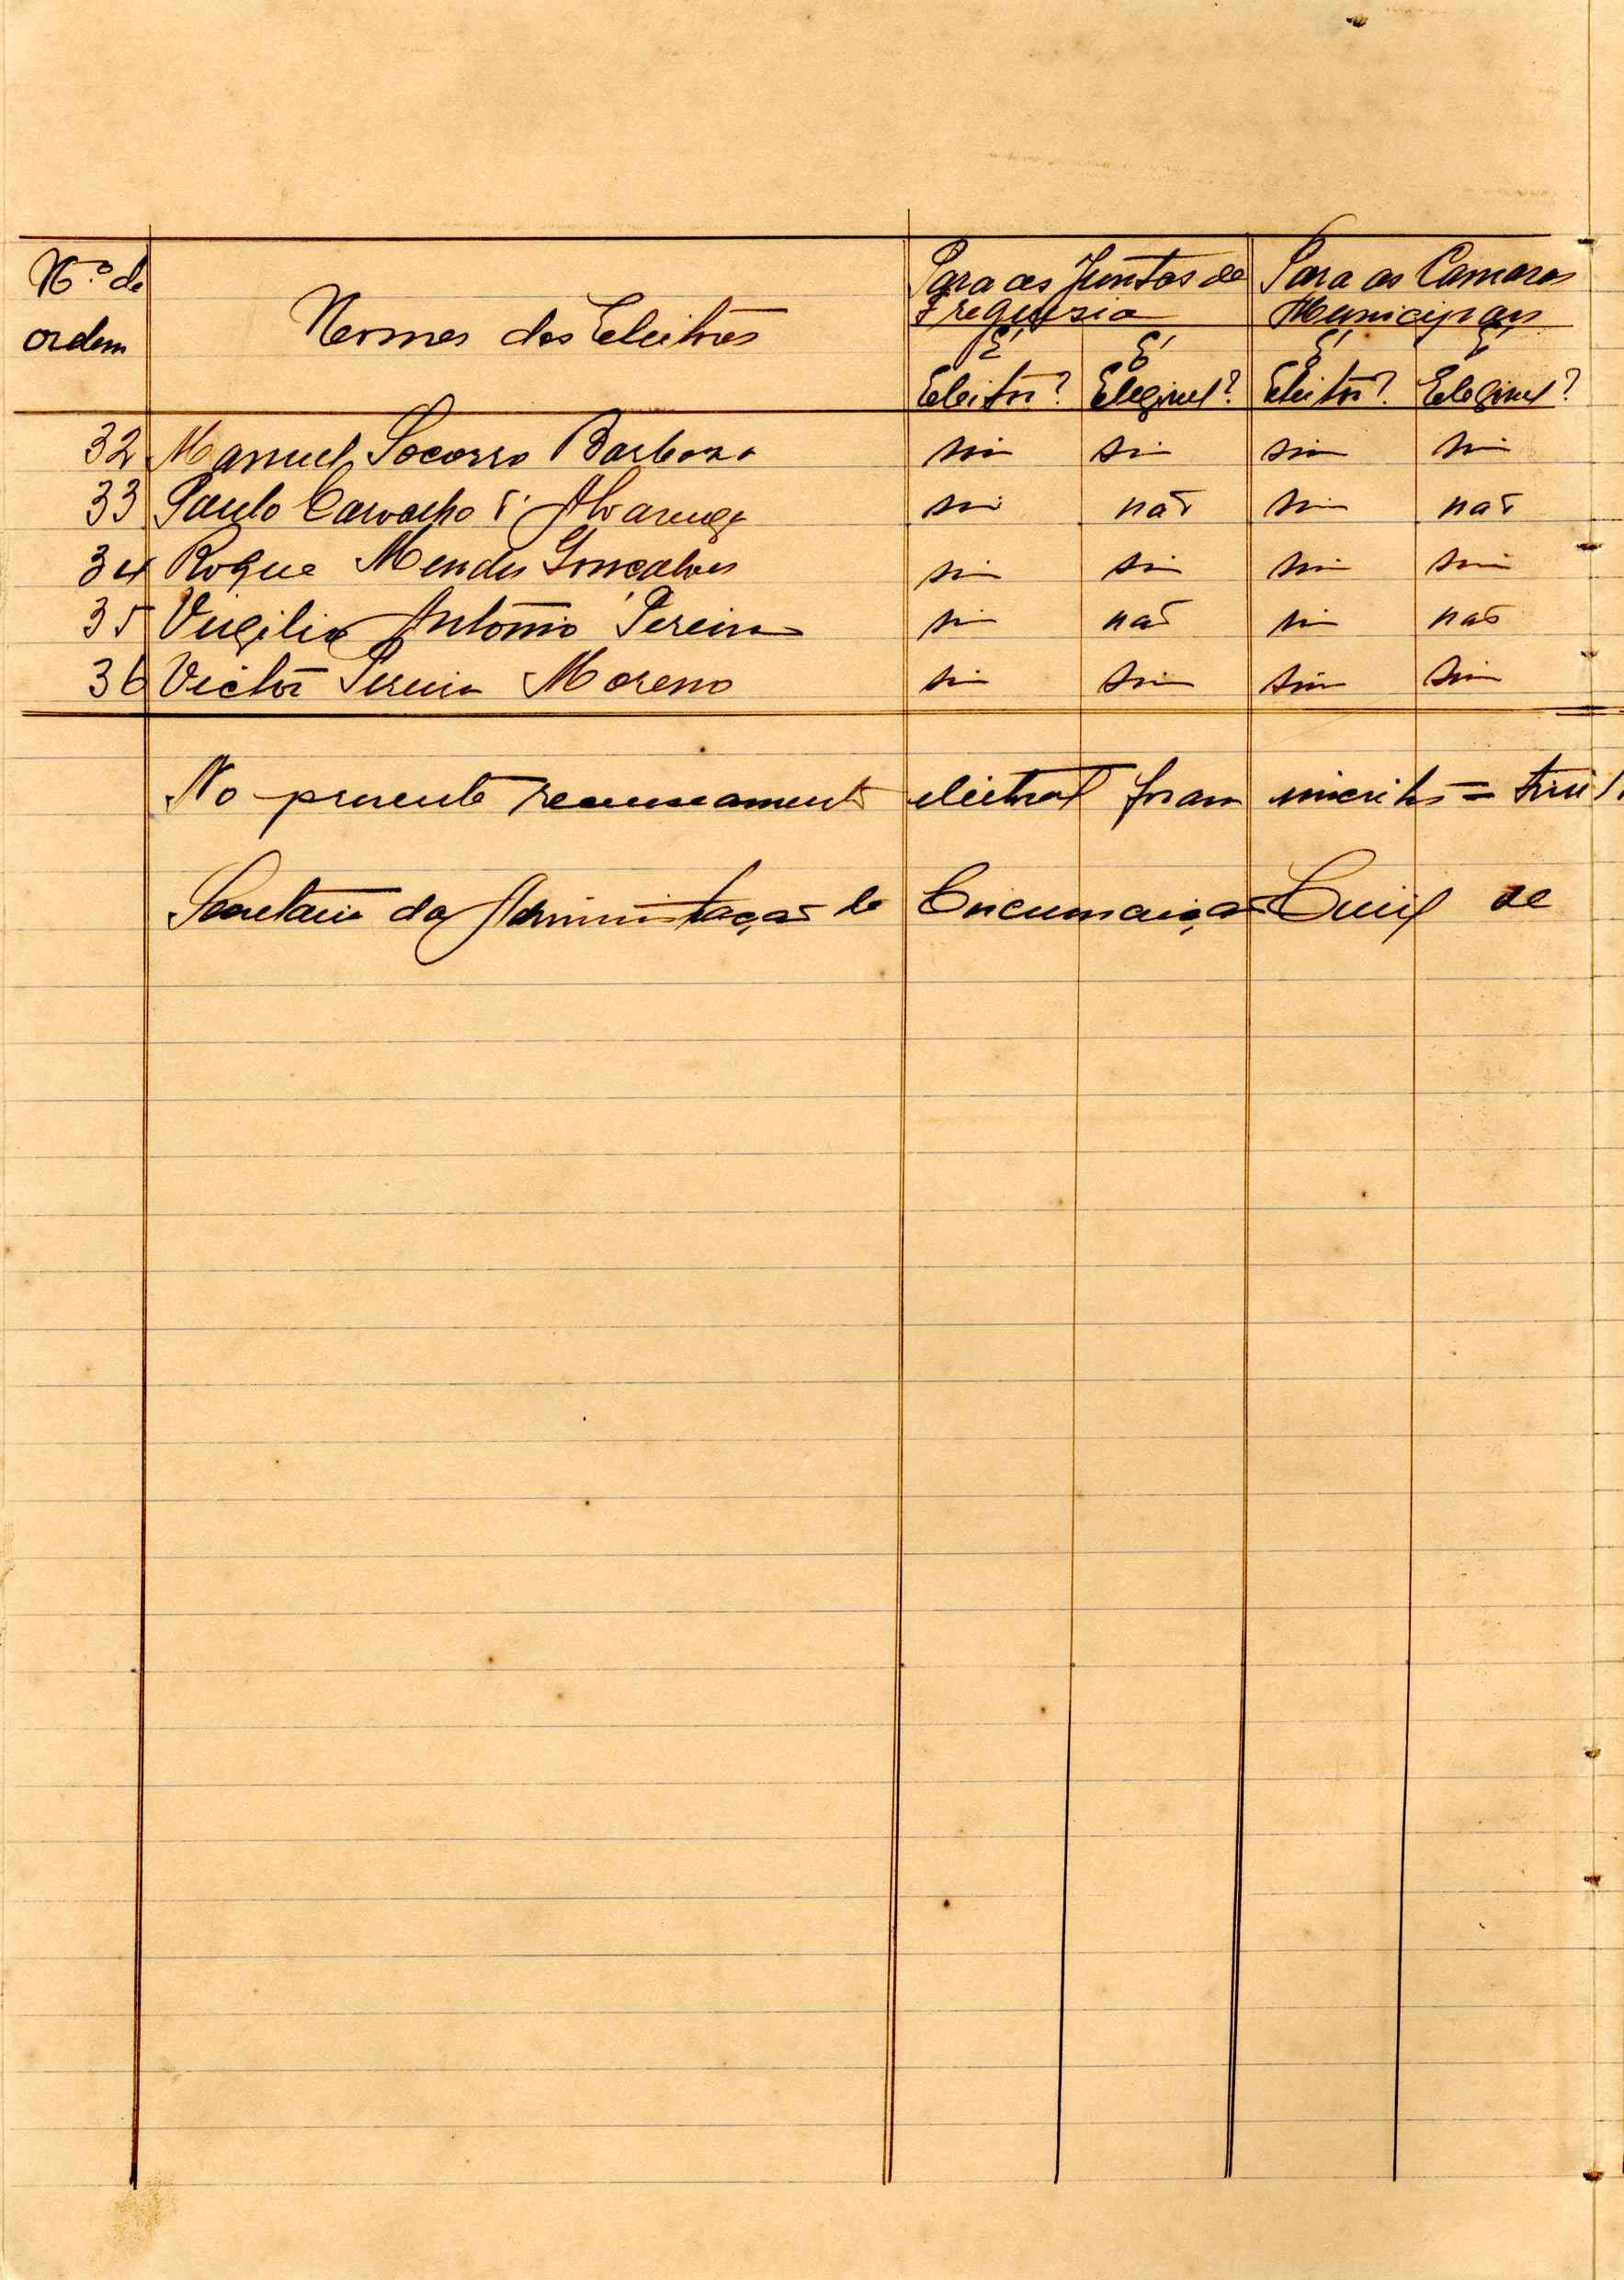 Nº de ordem
Nomes dos Eleitores
Para as Juntas de Freguesia
Para as Camaras Municipais
É Eleitor? É Elegivel? É Eleitor? É Elegivel?
32 Manuel Socorro Barbosa sim sim sim sim
33 Paulo Carvalho d'Alvarenga sim não sim não
34 Roque Mendes Gonçalves sim sim sim sim
35 Virgilio Antonio Pereira sim não sim não
36 Victor Pereira Moreno sim sim sim sim
No presente recenseamento eleitoral foram inscritos =
Secretaria da Administração da Circunscrição Civil de